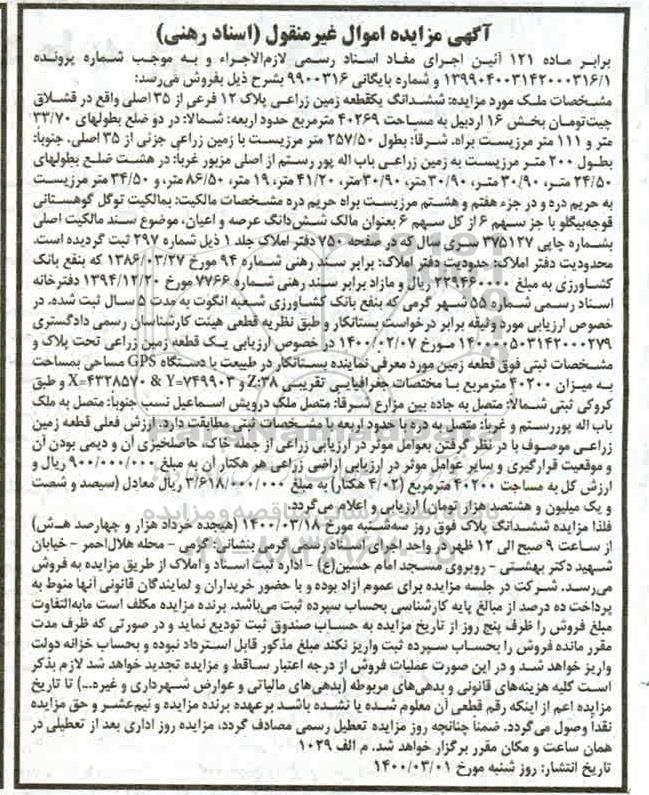 آگهی مزایده اموال غیرمنقول (اسناد رهنی)
برابر ماده ۱۲۱ آئین اجرای مفاد اسناد رسمی لازم‌الاجراء و به موجب شماره پرونده
۱۳۹۹۰۴۰۰۳۱۴۲۰۰۰۳۱۶/۱ و شماره بایگانی ۹۹۰۰۳۱۶ بشرح ذیل بفروش می‌رسد:
مشخصات ملک مورد مزایده: ششدانگ یکقطعه زمین زراعی پلاک ۱۲ فرعی از ۳۵ اصلی واقع در قشلاق
چیت‌تومان بخش ۱۶ اردبیل به مساحت ۴۰۲۶۹ مترمربع حدود اربعه: شمالا: در دو ضلع بطولهای ۳۳/۷۰
متر و ۱۱۱ متر مرزیست براه. شرقاً: بطول ۲۵۷/۵۰ متر مرزیست با زمین زراعی جزئی از ۳۵ اصلی. جنوباً:
بطول ۲۰۰ متر مرزیست به زمین زراعی باب اله پور رستم از اصلی مزبور غرباً: در هشت ضلع بطولهای
۲۴/۵۰ متر، ۳۰/۹۰ متر، ۳۰/۹۰ متر، ۳۰/۹۰متر، ۴۱/۲۰ متر، ۱۹ متر، ۸۶/۵۰ متر، و ۳۴/۵۰ متر مرزیست
به حریم دره و در جزء هفتم و هشتم مرزیست براه حریم دره مشخصات مالکیت: بمالکیت توگل گوهستانی
قوجه‌بیگلو با جز سهم ۶ از کل سهم ۶ بعنوان مالک شش‌دانگ عرصه و اعیان، موضوع سند مالکیت اصلی
بشماره چاپی ۳۷۵۱۲۷ سری سال که در صفحه ۷۵۰ دفتر املاک جلد ۱ ذیل شماره ۲۹۷ ثبت گردیده است.
محدودیت دفتر املاک: محدودیت دفتر املاک: برابر سند رهنی شماره ۹۴ مورخ ۱۳۸۶/۰۳/۲۷ که بنفع بانک
کشاورزی به مبلغ ۲۲۹۴۶۰۰۰۰ ریال و مازاد برابر سند رهنی شماره ۷۷۶۶ مورخ ۱۳۹۴/۱۲/۲۰ دفترخانه
اسناد رسمی شماره ۵۵ شهر گرمی که بنفع بانک کشاورزی شعبه انگوت به مدت ۵ سال ثبت شده. در
خصوص ارزیابی مورد وثیقه برابر درخواست بستانکار و طبق نظریه قطعی هیئت کارشناسان رسمی دادگستری
۱۴۰۰۰۰۵۰۳۱۴۲۰۰۰۲۷۹ مورخ ۱۴۰۰/۰۲/۰۷ در خصوص ارزیابی یک قطعه زمین زراعی تحت پلاک و
مشخصات ثبتی فوق قطعه زمین مورد معرفی نماینده بستانکار در طبیعت با دستگاه GPS مساحی بمساحت
به میزان ۴۰۲۰۰ مترمربع با مختصات جغرافیایی تقریبی Z:۳۸ و X=۴۳۲۸۵۷۰ & Y=۷۴۹۹۰۳ و طبق
کروکی ثبتی شمالا: متصل به جاده بین مزارع شرقا: متصل ملک درویش اسماعیل نسب جنوباً: متصل به ملک
باب اله پوررستم و غرباً: متصل به دره با حدود اربعه با مشخصات ثبتی مطابقت دارد. ارزش فعلی قطعه زمین
زراعی موصوف با در نظر گرفتن بعوامل موثر در ارزیابی زراعی از جمله خاک، حاصلخیزی آن و دیمی بودن آن
و موقعیت قرارگیری و سایر عوامل موثر در ارزیابی اراضی زراعی هر هکتار آن به مبلغ ۹۰۰/۰۰۰/۰۰۰ ریال و
ارزش کل به مساحت ۴۰۲۰۰ مترمربع (۴/۰۲ هکتار) به مبلغ ۳/۶۱۸/۰۰۰/۰۰۰ ریال معادل (سیصد و شصت
و یک میلیون و هشتصد هزار تومان) ارزیابی و اعلام می‌گردد.
فلذا مزایده ششدانگ پلاک فوق روز سه‌شنبه مورخ ۱۴۰۰/۰۳/۱۸ (هیجده خرداد هزار و چهارصد هـ‌ش)
از ساعت ۹ صبح الی ۱۲ ظهر در واحد اجرای اسناد رسمی گرمی بنشانی: گرمی - محله هلال‌احمر - خیابان
شهید دکتر بهشتی - روبروی مسجد امام حسین(ع) - اداره ثبت اسناد و املاک از طریق مزایده به فروش
می‌رسد. شرکت در جلسه مزایده برای عموم آزاد بوده و با حضور خریداران و نمایندگان قانونی آنها منوط به
پرداخت ده درصد از مبالغ پایه کارشناسی بحساب سپرده ثبت می‌باشد. برنده مزایده مکلف است مابه‌التفاوت
مبلغ فروش را ظرف پنج روز از تاریخ مزایده به حساب صندوق ثبت تودیع نماید و در صورتی که ظرف مدت
مقرر مانده فروش را بحساب سپرده ثبت واریز نکند مبلغ مذکور قابل استرداد نبوده و بحساب خزانه دولت
واریز خواهد شد و در این صورت عملیات فروش از درجه اعتبار ساقط و مزایده تجدید خواهد شد لازم بذکر
است کلیه هزینه‌های قانونی و بدهی‌های مربوطه (بدهی‌های مالیاتی و عوارض شهرداری و غیره...) تا تاریخ
مزایده اعم از اینکه رقم قطعی آن معلوم شده یا نشده باشد برعهده برنده مزایده و نیم‌عشر و حق مزایده
نقداً وصول می‌گردد. ضمناً چنانچه روز مزایده تعطیل رسمی مصادف گردد، مزایده روز اداری بعد از تعطیلی در
همان ساعت و مکان مقرر برگزار خواهد شد. م الف ۱۰۲۹
تاریخ انتشار: روز شنبه مورخ ۱۴۰۰/۰۳/۰۱